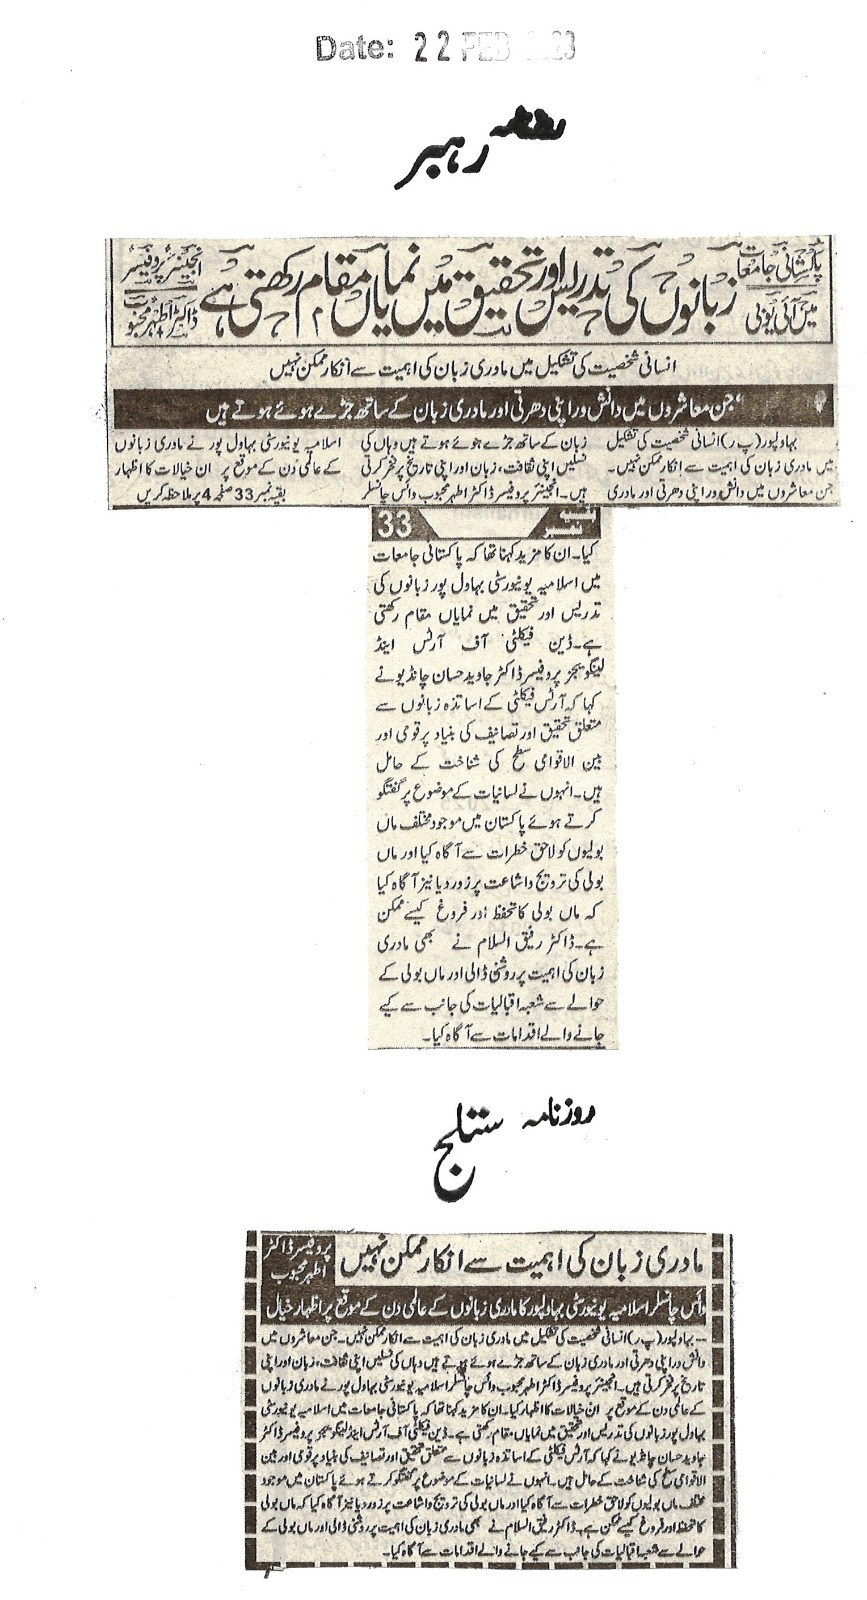 Date: 22 FEB 2023
روزنامہ رہبر
پاکستانی جامعات میں آئی یو بی
زبانوں کی تدریس اور تحقیق میں نمایاں مقام رکھتی ہے
انجینئر پروفیسر ڈاکٹر اطہر محبوب
انسانی شخصیت کی تشکیل میں مادری زبان کی اہمیت سے انکار ممکن نہیں
جن معاشروں میں دانش ور اپنی دھرتی اور مادری زبان کے ساتھ جڑے ہوئے ہوتے ہیں
بہاولپور (پ ر) انسانی شخصیت کی تشکیل
میں مادری زبان کی اہمیت سے انکار ممکن نہیں۔
جن معاشروں میں دانش ور اپنی دھرتی اور مادری
زبان کے ساتھ جڑے ہوئے ہوتے ہیں وہاں کی
نسلیں اپنی ثقافت، زبان اور اپنی تاریخ پر فخر کرتی
ہیں۔ انجینئر پروفیسر ڈاکٹر اطہر محبوب وائس چانسلر
اسلامیہ یونیورسٹی بہاول پور نے مادری زبانوں
کے عالمی دن کے موقع پر ان خیالات کا اظہار
بقیہ نمبر 33 صفحہ 4 پر ملاحظہ کریں
بقیہ نمبر 33
کیا۔ ان کا مزید کہنا تھا کہ پاکستانی جامعات
میں اسلامیہ یونیورسٹی بہاول پور زبانوں کی
تدریس اور تحقیق میں نمایاں مقام رکھتی
ہے۔ ڈین فیکلٹی آف آرٹس اینڈ
لینگویجز پروفیسر ڈاکٹر جاوید حسان چانڈیو نے
کہا کہ آرٹس فیکلٹی کے اساتذہ زبانوں سے
متعلق تحقیق اور تصانیف کی بنیاد پر قومی اور
بین الاقوامی سطح کی شناخت کے حامل
ہیں۔ انہوں نے لسانیات کے موضوع پر گفتگو
کرتے ہوئے پاکستان میں موجود مختلف ماں
بولیوں کو لاحق خطرات سے آگاہ کیا اور ماں
بولی کی ترویج و اشاعت پر زور دیا نیز آگاہ کیا
کہ ماں بولی کا تحفظ اور فروغ کیسے ممکن
ہے۔ ڈاکٹر رفیق السلام نے بھی مادری
زبان کی اہمیت پر روشنی ڈالی اور ماں بولی کے
حوالے سے شعبہ اقبالیات کی جانب سے کیے
جانے والے اقدامات سے آگاہ کیا۔
روزنامہ ستلج
مادری زبان کی اہمیت سے انکار ممکن نہیں
پروفیسر ڈاکٹر اطہر محبوب
وائس چانسلر اسلامیہ یونیورسٹی بہاولپور کا مادری زبانوں کے عالمی دن کے موقع پر اظہار خیال
بہاولپور (پ ر) انسانی شخصیت کی تشکیل میں مادری زبان کی اہمیت سے انکار ممکن نہیں۔ جن معاشروں میں
دانش ور اپنی دھرتی اور مادری زبان کے ساتھ جڑے ہوئے ہوتے ہیں وہاں کی نسلیں اپنی ثقافت، زبان اور اپنی
تاریخ پر فخر کرتی ہیں۔ انجینئر پروفیسر ڈاکٹر اطہر محبوب وائس چانسلر اسلامیہ یونیورسٹی بہاول پور نے مادری زبانوں
کے عالمی دن کے موقع پر ان خیالات کا اظہار کیا۔ ان کا مزید کہنا تھا کہ پاکستانی جامعات میں اسلامیہ یونیورسٹی
بہاول پور زبانوں کی تدریس اور تحقیق میں نمایاں مقام رکھتی ہے۔ ڈین فیکلٹی آف آرٹس اینڈ لینگویجز پروفیسر ڈاکٹر
جاوید حسان چانڈیو نے کہا کہ آرٹس فیکلٹی کے اساتذہ زبانوں سے متعلق تحقیق اور تصانیف کی بنیاد پر قومی اور بین
الاقوامی سطح کی شناخت کے حامل ہیں۔ انہوں نے لسانیات کے موضوع پر گفتگو کرتے ہوئے پاکستان میں موجود
مختلف ماں بولیوں کو لاحق خطرات سے آگاہ کیا اور ماں بولی کی ترویج و اشاعت پر زور دیا نیز آگاہ کیا کہ ماں بولی
کا تحفظ اور فروغ کیسے ممکن ہے۔ ڈاکٹر رفیق السلام نے بھی مادری زبان کی اہمیت پر روشنی ڈالی اور ماں بولی کے
حوالے سے شعبہ اقبالیات کی جانب سے کیے جانے والے اقدامات سے آگاہ کیا۔